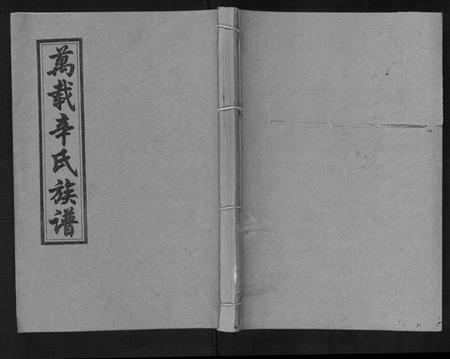 萬载辛氏族谱